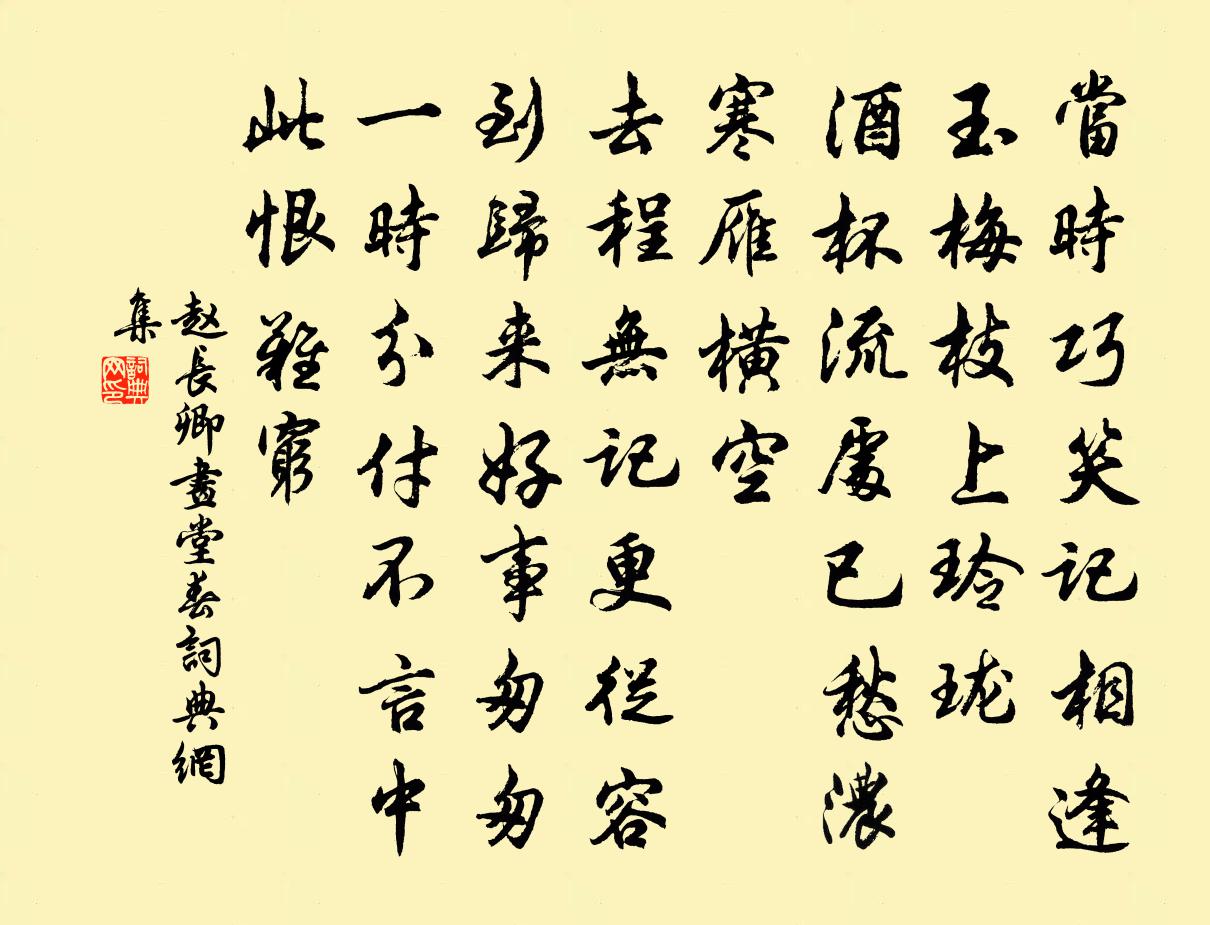 當時巧笑記相逢
玉梅枝上玲珑
酒杯流處已愁濃
寒雁横空
去程無記更從容
到歸来好事匆匆
一時分付不言中
此恨難窮
赵長卿畫堂春詞典網
集
詞典网印